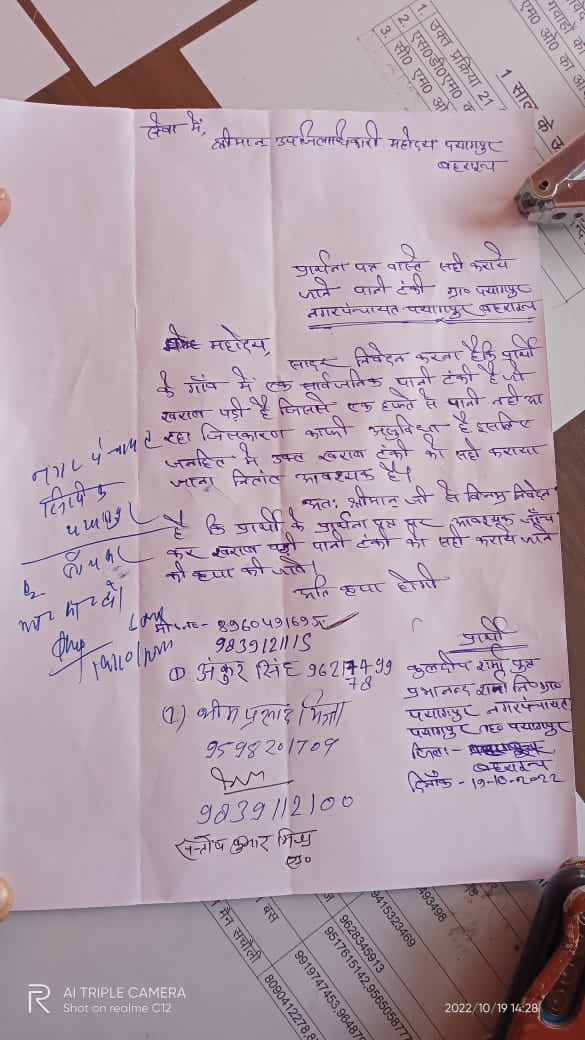 सेवा में,
श्रीमान उपजिलाधिकारी महोदय पयागपुर
बहराइच
प्रार्थना पत्र वास्ते सही कराये
जाने पानी टंकी ग्रा० पयागपुर
नगरपंचायत पयागपुर बहराइच
महोदय,
सादर निवेदन करना है कि प्रार्थी
के गाँव में एक सार्वजनिक पानी टंकी है जो
खराब पड़ी है जिससे एक हफ्ते से पानी नही आ
रहा जिसकारण काफी असुविधा है इसलिए
जनहित में उक्त खराब टंकी को सही कराया
जाना नितांत आवश्यक है।
अतः श्रीमान जी से विनम्र निवेदन
है कि प्रार्थी के प्रार्थना पत्र पर आवश्यक जाँच
कर खराब पड़ी पानी टंकी को सही कराये जाने
की कृपा की जाये।
अति कृपा होगी
नगर पंचायत
पयागपुर
मो०न०- 8960491695
9839121115
① अंकुर सिंह 9621 7499
78
(2) भीम प्रसाद मिश्रा
9598201709
9839112100
सन्तोष कुमार मिश्र
प्रार्थी
कुलदीप शर्मा पुत्र
प्रभानन्द शर्मा नि० ग्रा०
पयागपुर नगरपंचायत
पयागपुर तह० पयागपुर
जिला-
बहराइच
दिनाँक - 19-10-2022
1. उक्त प्रक्रिया 21
2. एस०डी०एम० क
3. सी० एम० ओ
1 साल के उ
एम० ओ० का आ
गवाहों के
मैन सचौली
बस
8090412278,8
9919747453,96487
9517615142,9565058777
9628345913
9415323469
493498
AI TRIPLE CAMERA
Shot on realme C12
2022/10/19 14:28